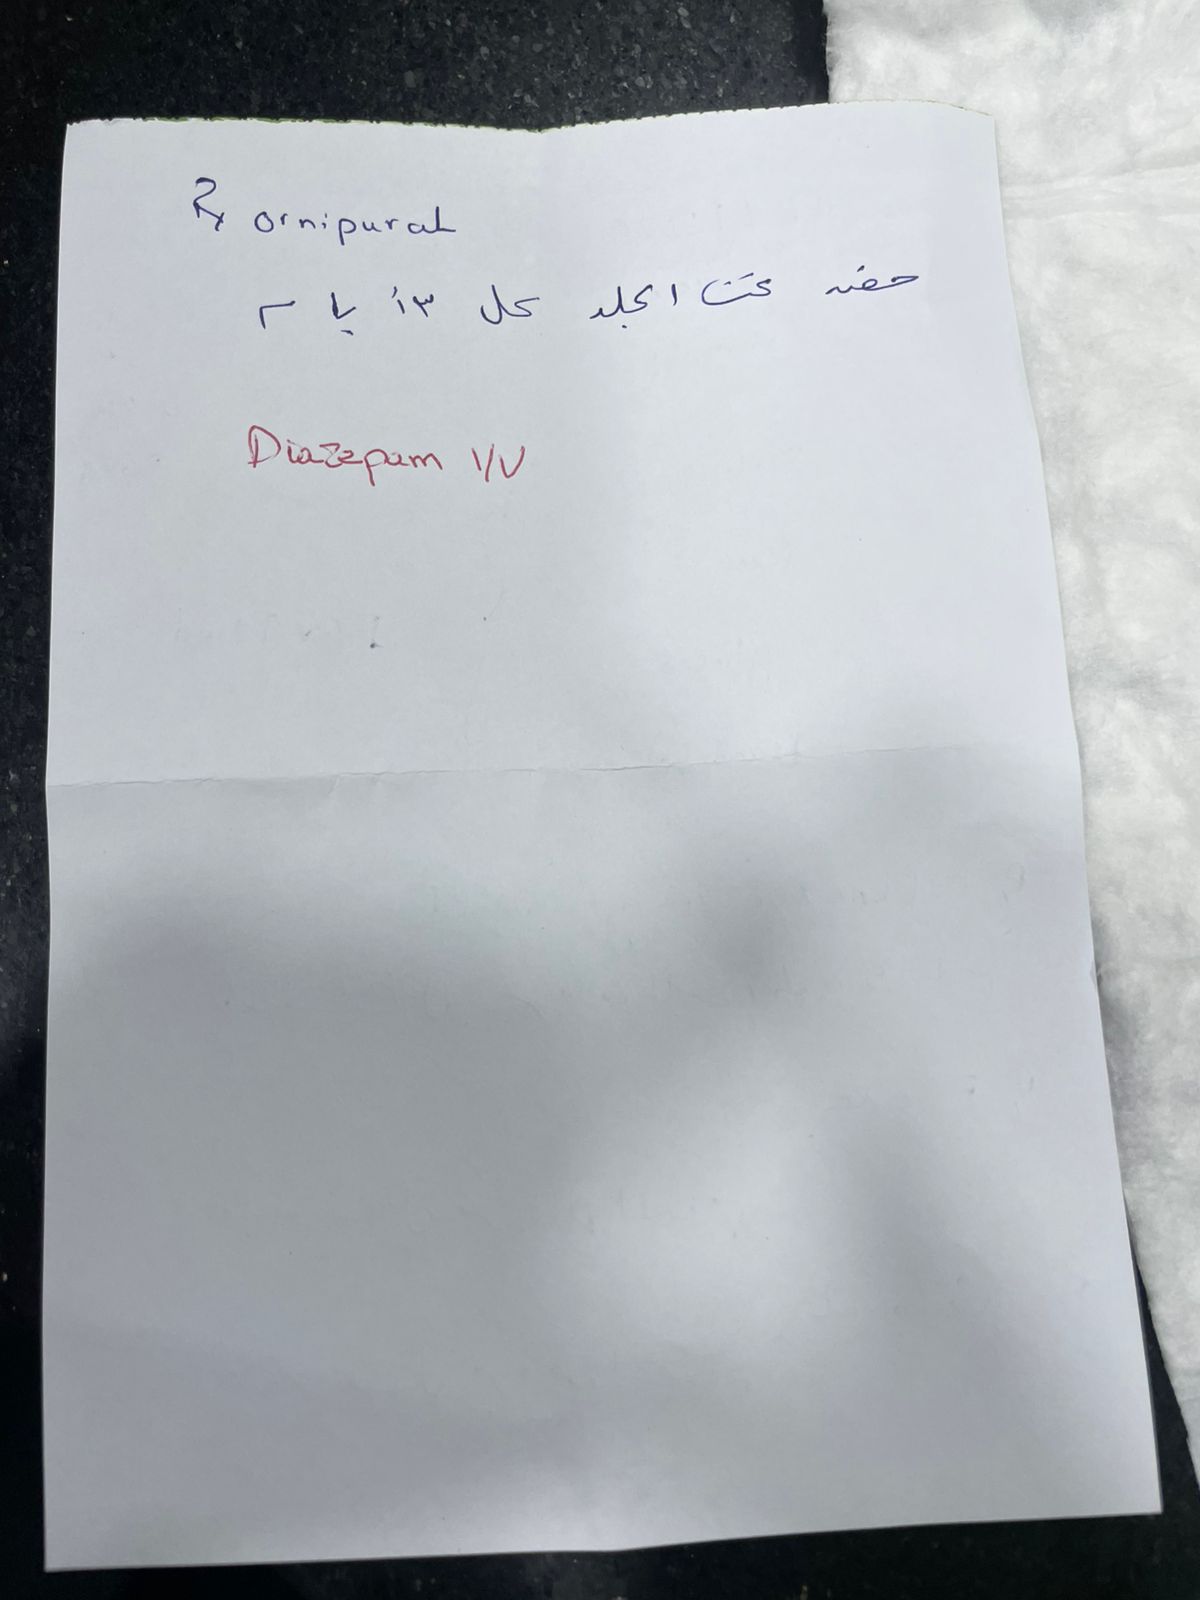 Rx ornipural
حقنه تحت الجلد كل ٣ أيام
Diazepam I/V